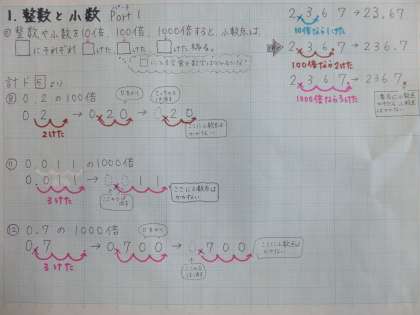 1. 整数と小数 Part 1
パート
◎整数や小数を10倍、100倍、1000倍すると、小数点は、
□にそれぞれ□けた□けた□けた移る。
2.3.6 7 → 23.67
10倍なら1けた
2.3 6.7 → 236.7
100倍なら2けた
2.3 6 7. → 2367.
1000倍なら3けた
計ド⑤より
0.2の100倍
0.2 → 0.20 → 0 20
2けた
ここに小数点はかかない
⑪ 0.011の1000倍
0.011 → 0 011
3けた
ここに小数点はかかない
⑫ 0.7の1000倍
0.7 → 0.700 → 0 700
3けた
ここに小数点はかかない